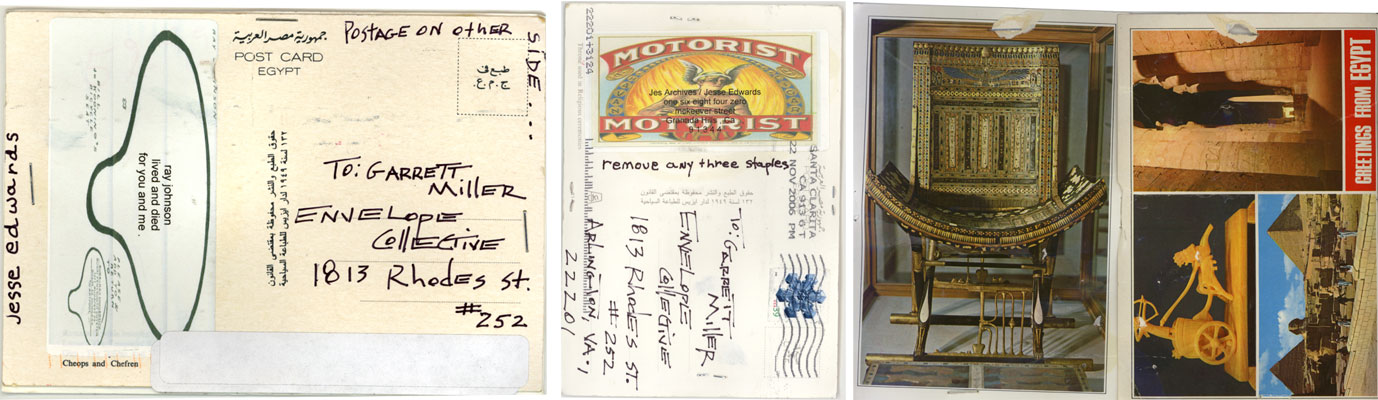 POSTAGE ON OTHER
SIDE...
جمهورية مصر العربية
POST CARD
EGYPT
طبع فى
ج.م.ع.
ray johnson
lived and died
for you and me.
jesse edwards
TO: GARRETT
MILLER
ENVELOPE
COLLECTIVE
1813 Rhodes St.
#252
حقوق الطبع والنشر محفوظة بمقتضى القانون
١٣٢ لسنة ١٩٤٩ لدار ايزيس للطباعة السياحية
Cheops and Chefren
22201+3124
MOTORIST
Jes Archives / Jesse Edwards
one six eight four zero
mckeever street
Granada Hills, Ca
91344
MOTORIST
remove any three staples
SANTA CLARITA
CA 913 6 T
22 NOV 2006 PM
حقوق الطبع والنشر محفوظة بمقتضى القانون
١٣٢ لسنة ١٩٤٩ لدار ايزيس للطباعة السياحية
TO: GARRETT
MILLER
ENVELOPE
COLLECTIVE
1813 RHODES ST.
#252
ARLINGTON, VA.,
22201
GREETINGS FROM EGYPT